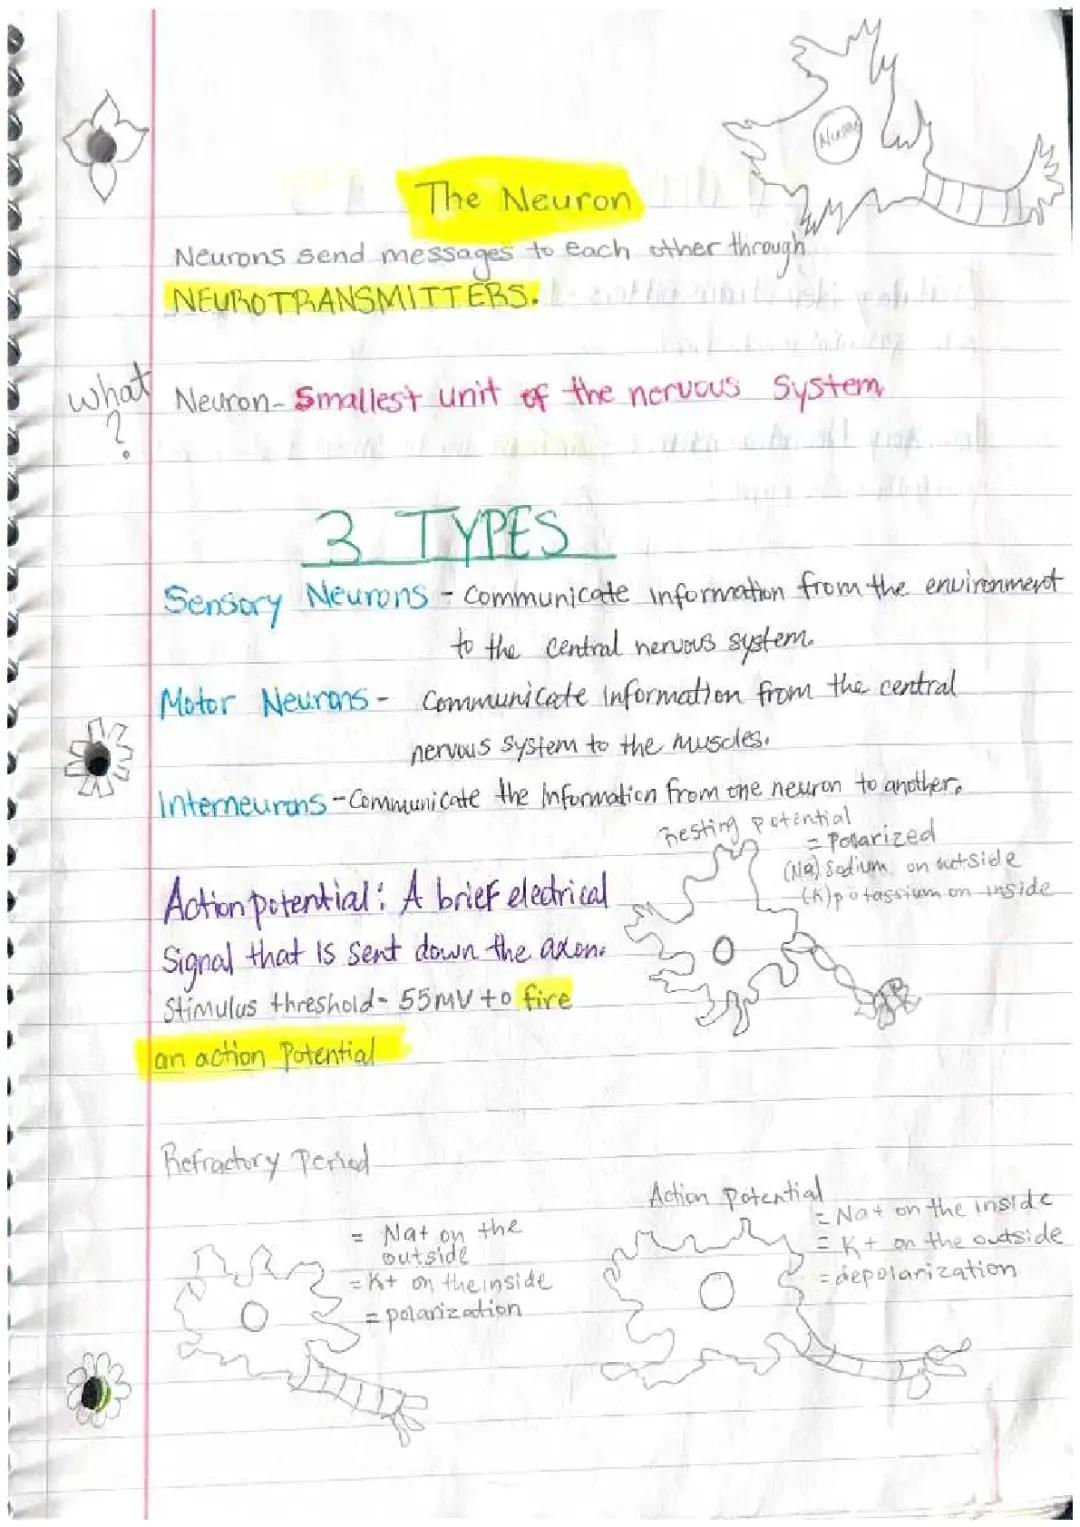 The Neuron
Neurons send messages to each other through
NEUROTRANSMITTERS.
what
?
Neuron- Smallest unit of the nervous System
3 TYPES
Sensory Neurons - Communicate information from the environment
to the central nervous system.
Motor Neurons - Communicate information from the central
nervous system to the muscles.
Interneurons - Communicate the information from one neuron to another.
resting potential
= Polarized
(Na) Sodium on outside
(K) potassium on inside
Action potential: A brief electrical
Signal that is sent down the axon.
Stimulus threshold- 55mV to fire
an action Potential
Refractory Period
= Na+ on the
outside
= K+ on the inside
= polarization
Action potential
= Na+ on the inside
= K+ on the outside
= depolarization